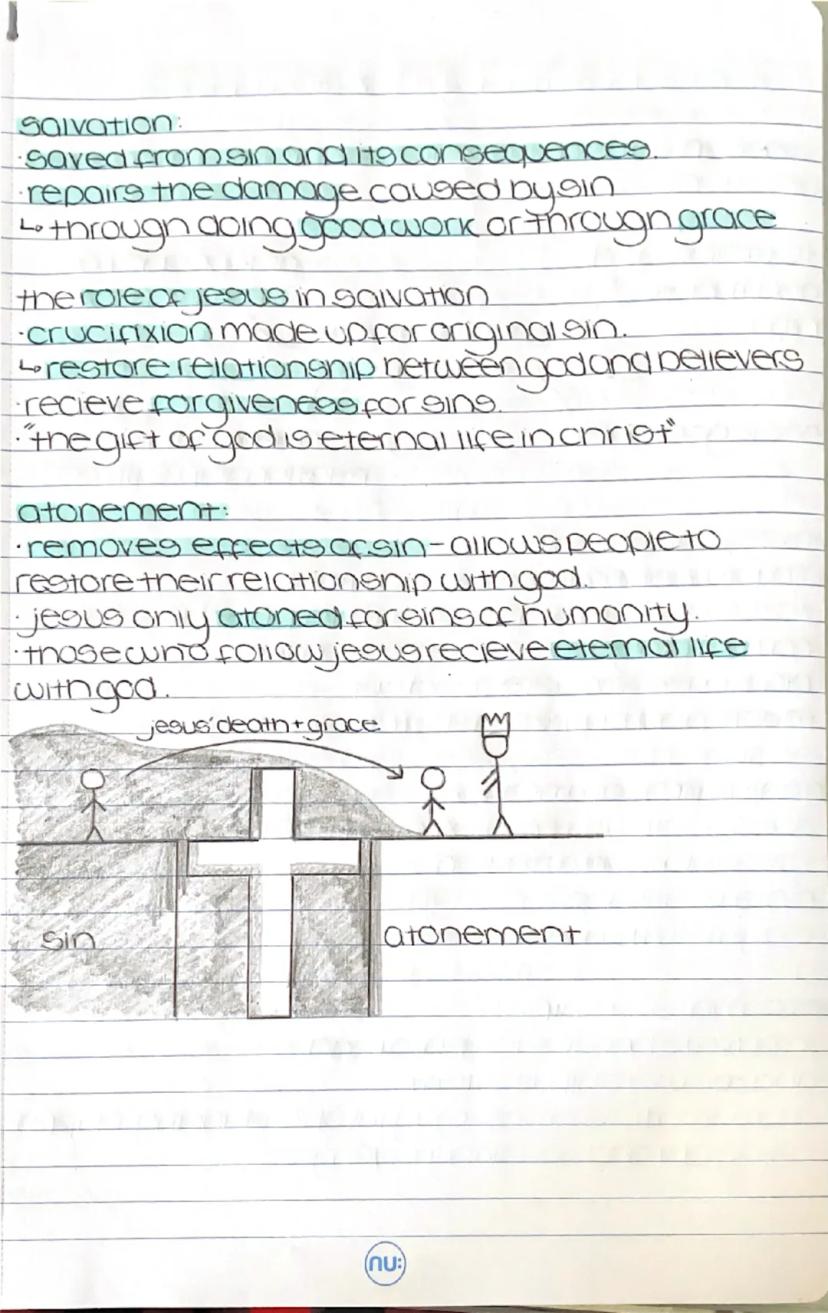 salvation:
·saved from sin and its consequences.
·repairs the damage caused by sin
↳through doing good work or through grace
the role of jesus in salvation
·crucifixion made up for original sin.
↳restore relationship between god and believers
·recieve forgiveness for sins.
·"the gift of god is eternal life in christ"
atonement:
·removes effects of sin - allows people to
restore their relationship with god.
·jesus only atoned for sins of humanity.
·those who follow jesus recieve eternal life
with god.
jesus' death + grace
sin
atonement
nu: